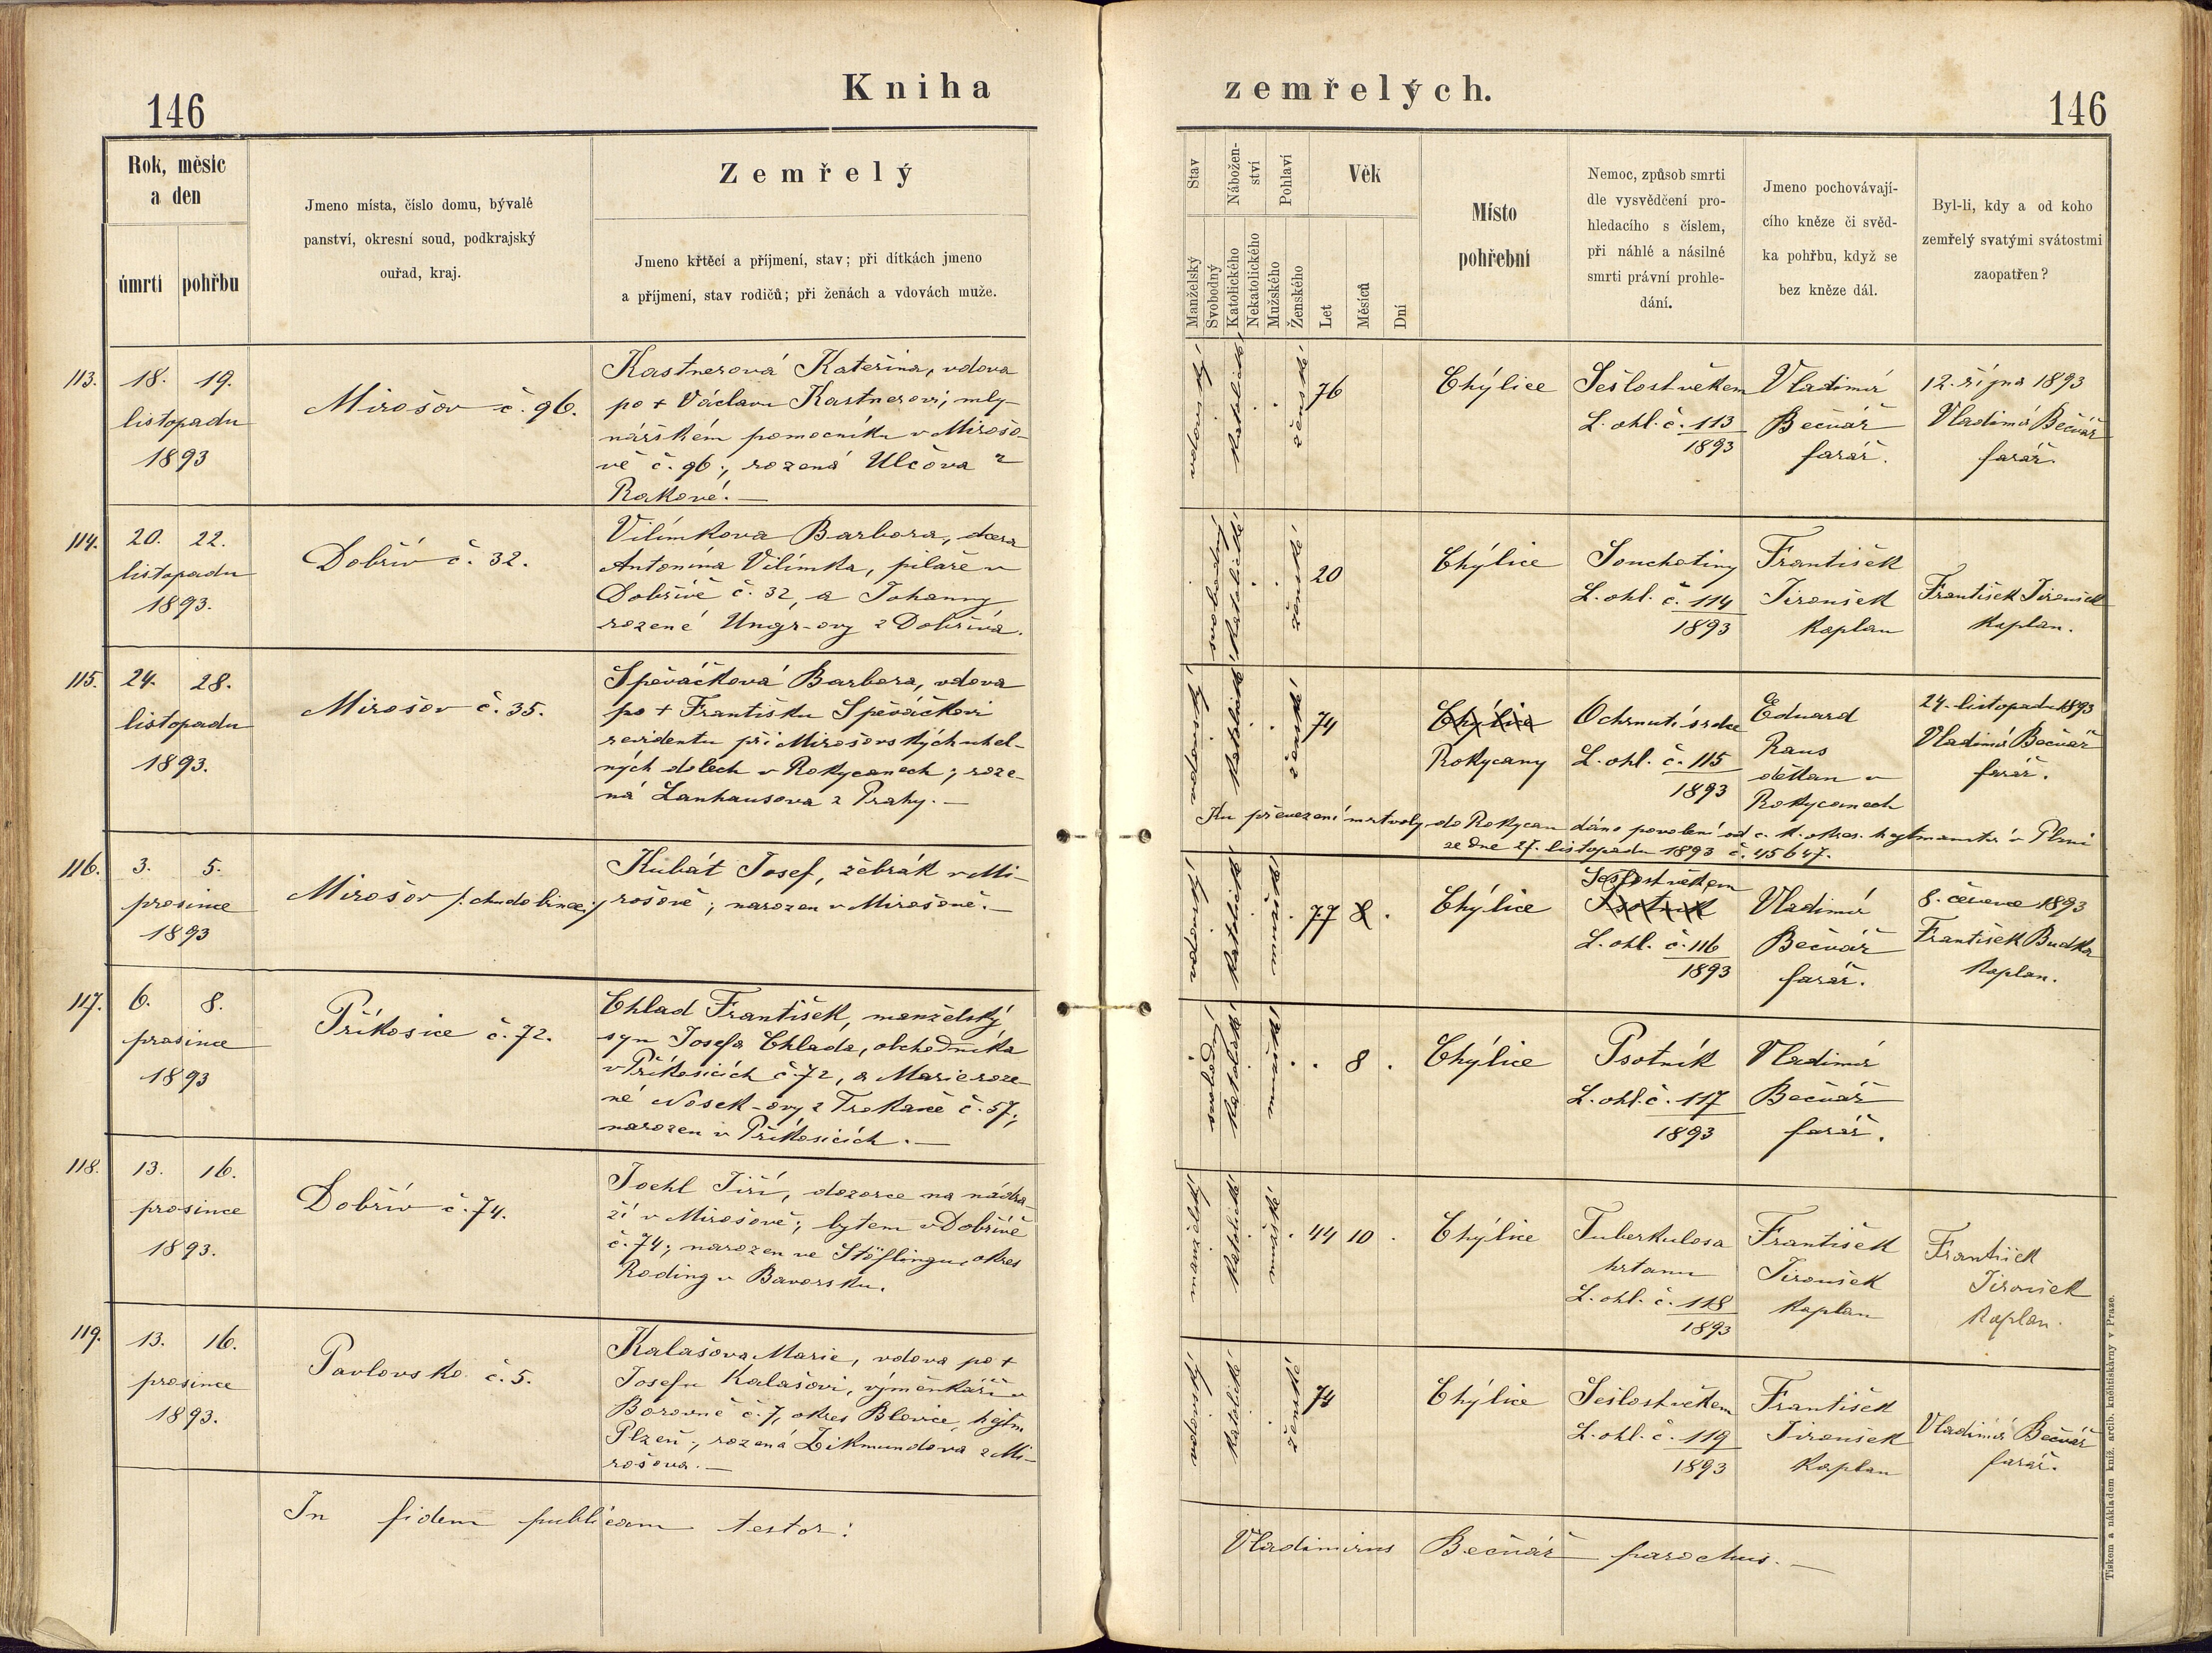 146
Kniha
Rok, měsíc
a den
úmrtí
pohřbu
Jmeno místa, číslo domu, bývalé
panství, okresní soud, podkrajský
ouřad, kraj.
Zemřelý
Jmeno křtěcí a příjmení, stav; při dítkách jmeno
a příjmení, stav rodičů; při ženách a vdovách muže.
113.
18. 19.
listopadu
1893
Mirošov č. 96.
Kastnerová Kateřina, vdova
po + Václavu Kastnerovi, mly-
nářském pomocníku v Mirošo-
vě č. 96.; rozená Ulčova z
Rakové. —
114.
20. 22.
listopadu
1893.
Dobřív č. 32.
Vilímkova Barbora, dcera
Antonína Vilímka, pilaře v
Dobřívě č. 32, a Johanny
rozené Ungr-ovy z Dobříva.
115.
24. 28.
listopadu
1893.
Mirošov č. 35.
Spěváčková Barbora, vdova
po + Františku Spěváčkovi
revidentu při Mirošovských uhel-
ných dolech v Rokycanech; roze-
ná Lanhausova z Prahy. —
116.
3. 5.
prosince
1893
Mirošov /: chudobinec :/
Kubát Josef, žebrák v Mi-
rošově; narozen v Mirošově. —
117.
6. 8.
prosince
1893
Příkosice č. 72.
Chlad František, manželský
syn Josefa Chlada, obchodníka
v Příkosicích č. 72, a Marie roze-
né Nosek-ovy z Trokavě č. 57;
narozen v Příkosicích. —
118.
13. 16.
prosince
1893.
Dobřív č. 74.
Jockl Jiří, dozorce na nádra-
ží v Mirošově; bytem v Dobřívě
č. 74; narozen ve Stöflingu, okres
Roding v Bavorsku.
119.
13. 16.
prosince
1893.
Pavlovsko č. 5.
Kalašova Marie, vdova po +
Josefu Kalašovi, výměnkáři v
Borovně č. 7, okres Blovice, hejtm.
Plzeň; rozená Zikmundova z Mi-
rošova. —
In fidem publicam testor:
zemřelých.
146
Stav
Manželský
Svobodný
Nábožen-
ství
Katolického
Nekatolického
Pohlaví
Mužského
Ženského
Věk
Let
Měsíců
Dní
Místo
pohřební
Nemoc, způsob smrti
dle vysvědčení pro-
hledacího s číslem,
při náhlé a násilné
smrti právní prohle-
dání.
Jmeno pochovávají-
cího kněze či svěd-
ka pohřbu, když se
bez kněze dál.
Byl-li, kdy a od koho
zemřelý svatými svátostmi
zaopatřen?
vdovský
katolické
ženské
76
Chýlice
Sešlost věkem
L. ohl. č. 113
1893
Vladimír
Bečvář
farář.
12. října 1893
Vladimír Bečvář
farář.
svobodný
katolické
ženské
20
Chýlice
Souchotiny
L. ohl. č. 114
1893
František
Jiroušek
kaplan
František Jiroušek
kaplan.
vdovský
katolické
ženské
74
Chýlice
Rokycany
Ochrnutí srdce
L. ohl. č. 115
1893
Eduard
Raus
děkan v
Rokycanech
24. listopadu 1893
Vladimír Bečvář
farář.
Ku převezení mrtvoly do Rokycan dáno povolení od c. k. okres. hejtmanství v Plzni
ze dne 27. listopadu 1893 č. 45647.
vdovský
katolické
mužské
77 8 .
Chýlice
Sešlost věkem
Psotník
L. ohl. č. 116
1893
Vladimír
Bečvář
farář.
8. července 1893
František Budka
kaplan.
svobodný
katolické
mužské
. 8 .
Chýlice
Psotník
L. ohl. č. 117
1893
Vladimír
Bečvář
farář.
manželský
katolické
mužské
44 10 .
Chýlice
Tuberkulosa
hrtanu
L. ohl. č. 118
1893
František
Jiroušek
kaplan
František
Jiroušek
kaplan.
vdovský
katolické
ženské
74
Chýlice
Sešlost věkem
L. ohl. č. 119
1893
František
Jiroušek
kaplan
Vladimír Bečvář
farář.
Vladimirus Bečvář parochus. —
Tiskem a nákladem kníž. arcib. knihtiskárny v Praze.